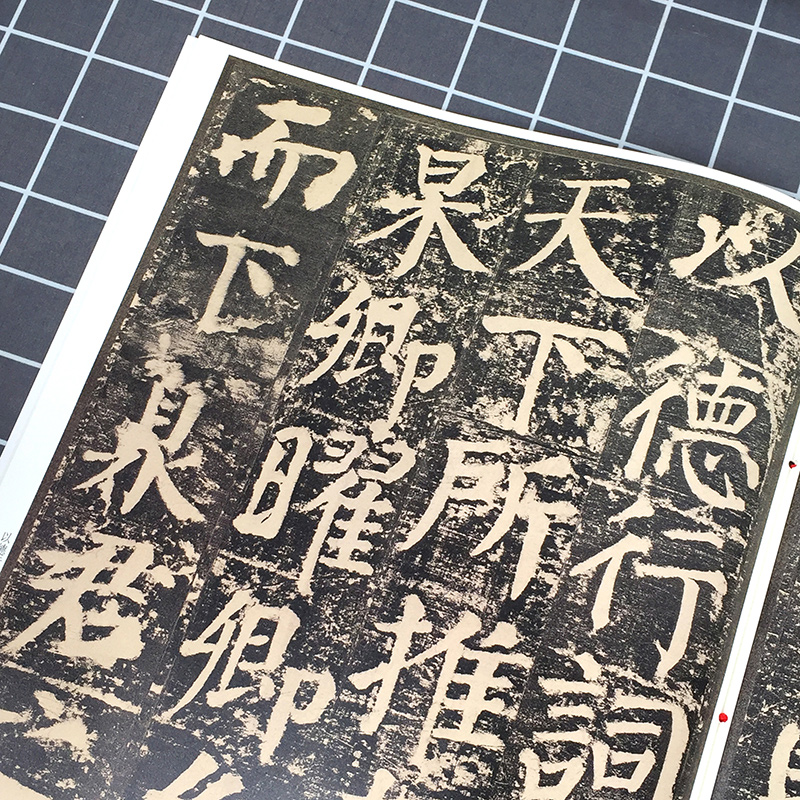 以德行詞
天下所推
杲卿曜卿
而下君
以德